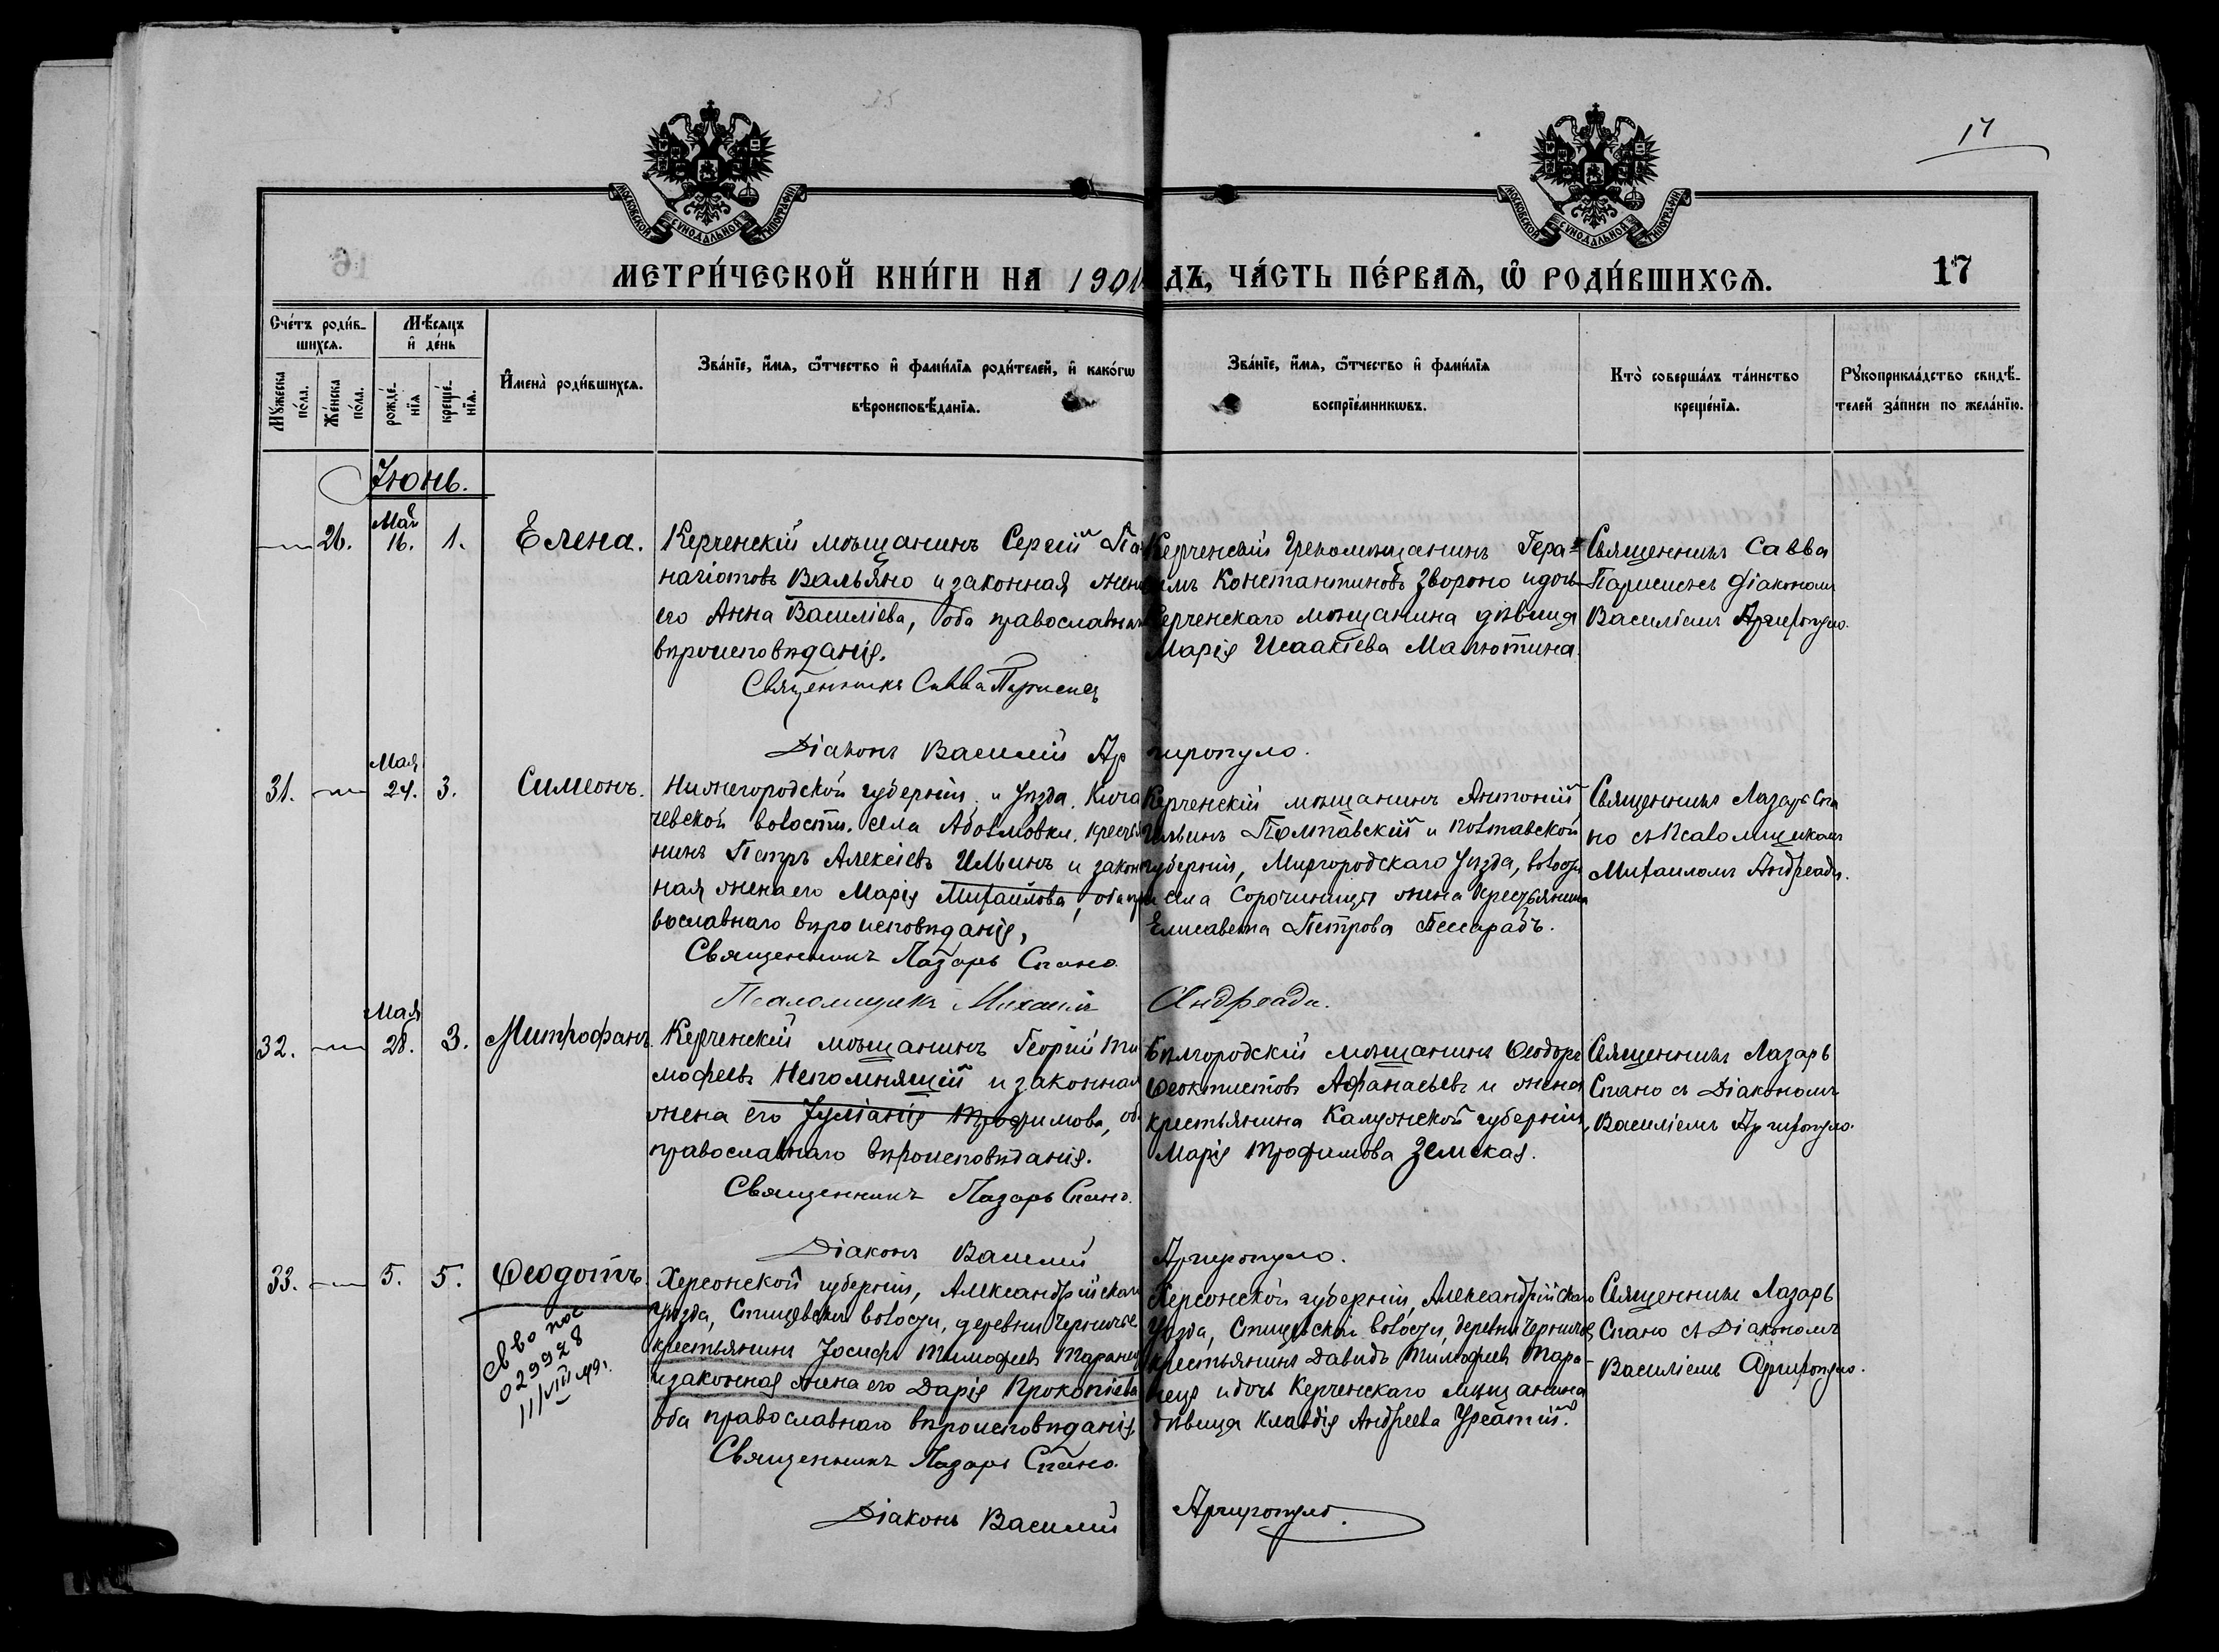 17
МОСКОВСКОЙ СУНОДАЛЬНОЙ ТИПОГРАФІИ
МОСКОВСКОЙ СУНОДАЛЬНОЙ ТИПОГРАФІИ
МЕТРИ́ЧЕСКОЙ КНИ́ГИ НА 1901 ДЪ, ЧА́СТЬ ПЕ́РВАѦ, Ѡ҆ РОДИ́ВШИХСѦ. 17
Сче́тъ роди́в-
шихсѧ.
Мꙋ́жеска по́ла.
Же́нска по́ла.
Мѣ́сѧцъ и҆ де́нь
рожде́-нїѧ
креще́-нїѧ.
И҆мена̀ роди́вшихсѧ.
Зва́нїе, и҆́мѧ, ѻ҆́тчество и҆ фами́лїѧ роди́телей, и҆ како́гѡ
вѣроисповѣ́данїѧ.
Зва́нїе, и҆́мѧ, ѻ҆́тчество и҆ фами́лїѧ
воспрїе́мникѡвъ.
Кто̀ соверша́лъ та́инство
креще́нїѧ.
Рꙋкоприкла́дство свидѣ́-
телей за́писи по жела́нїю.
Іюнь.
26. Мая 16. 1. Елена.
Керченскій мѣщанинъ Сергій Па
нагіотовъ Вальяно и законная жена
его Анна Василіева, оба православнаго
вѣроисповѣданія.
Священникъ Савва Парисенъ
Діаконъ Василій Аргиропуло.
Керченскій Грекомѣщанинъ Гера-
симъ Константиновъ Звороно и дочь
Керченскаго мѣщанина дѣвица
Марія Исаакіева Малютина.
Священникъ Савва
Діакономъ
Василіемъ Аргиропуло.
31. Мая 24. 3. Симеонъ.
Нижегородской губерніи и уѣзда,
волости, села крестья
нинъ Петръ Алексіевъ Ильинъ и закон
ная жена его Марія Михаилова, оба пра
вославнаго вѣроисповѣданія,
Священникъ Лазарь Спано.
Псаломщикъ Михаилъ Андреади.
Керченскій мѣщанинъ Антоній
Ильинъ Полтавскій и Полтавской
губерніи, Миргородскаго уѣзда, волости
и села Сорочинцы жена крестьянина
Елисавета Петрова
Священникъ Лазарь Спа
но съ Псаломщикомъ
Михаиломъ Андреади.
32. Мая 28. 3. Митрофанъ.
Керченскій мѣщанинъ Георгій Ти
мофеевъ Непомнящій и законная
жена его Іуліанія Трофимова, оба
православнаго вѣроисповѣданія.
Священникъ Лазарь Спано.
Діаконъ Василій Аргиропуло.
Бѣлгородскій мѣщанинъ Ѳеодоръ
Ѳеоктистовъ Афанасьевъ и жена
крестьянина Калужской губерніи,
Марія Трофимова Земская.
Священникъ Лазарь
Спано съ Діакономъ
Василіемъ Аргиропуло.
33. 5. 5. Ѳеодотъ.
029928
11/VIII 49 г.
Херсонской губерніи, Александрійскаго
уѣзда, волости, деревни
крестьянинъ Іосифъ Тимофеевъ Таранецъ
и законная жена его Дарія Прокопіева
оба православнаго вѣроисповѣданія.
Священникъ Лазарь Спано.
Діаконъ Василій Аргиропуло.
Херсонской губерніи, Александрійскаго
уѣзда, волости, деревни
крестьянинъ Давидъ Тимофеевъ Тара-
нецъ и дочь Керченскаго мѣщанина
дѣвица Клавдія Андреева
Священникъ Лазарь
Спано съ Діакономъ
Василіемъ Аргиропуло.